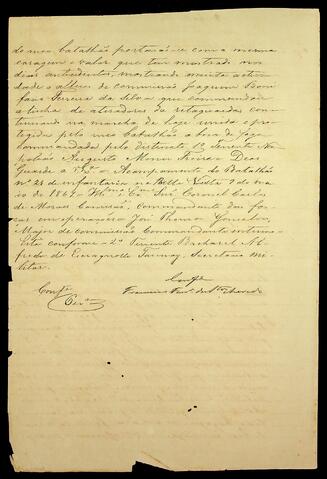 do meu batalhão portarão-se com a mesma
coragem e valor que tem mostrado nos
dias antecedentes, mostrando muita activi
dade o alferes de commissão Joaquim Bom
fim Ferreira da Silva que commandou
a linha de atiradores da retaguarda con
tinuando na marcha de hoje unida e pro
tegida pelo meu batalhão a boca de fogo
commandada pelo distincto 1º Tenente Na
poleão Augusto Moniz Freire. Deus
Guarde a V.Sª. Acampamento do Batalhão
nº 21 de infantaria na Bella Vista 9 de ma
io de 1867. Illmo. Exmo. Snr. Coronel Carlos
de Moraes Camisão, Commandante das for
ças em operações José Thomaz Gonçalves,
Major de commissão Commandante interino
Está conforme 2º Tenente Bacharel Al
fredo de Escragnolle Taunay, Secretario Mi
litar.
Confe.
Francisco
Confe.